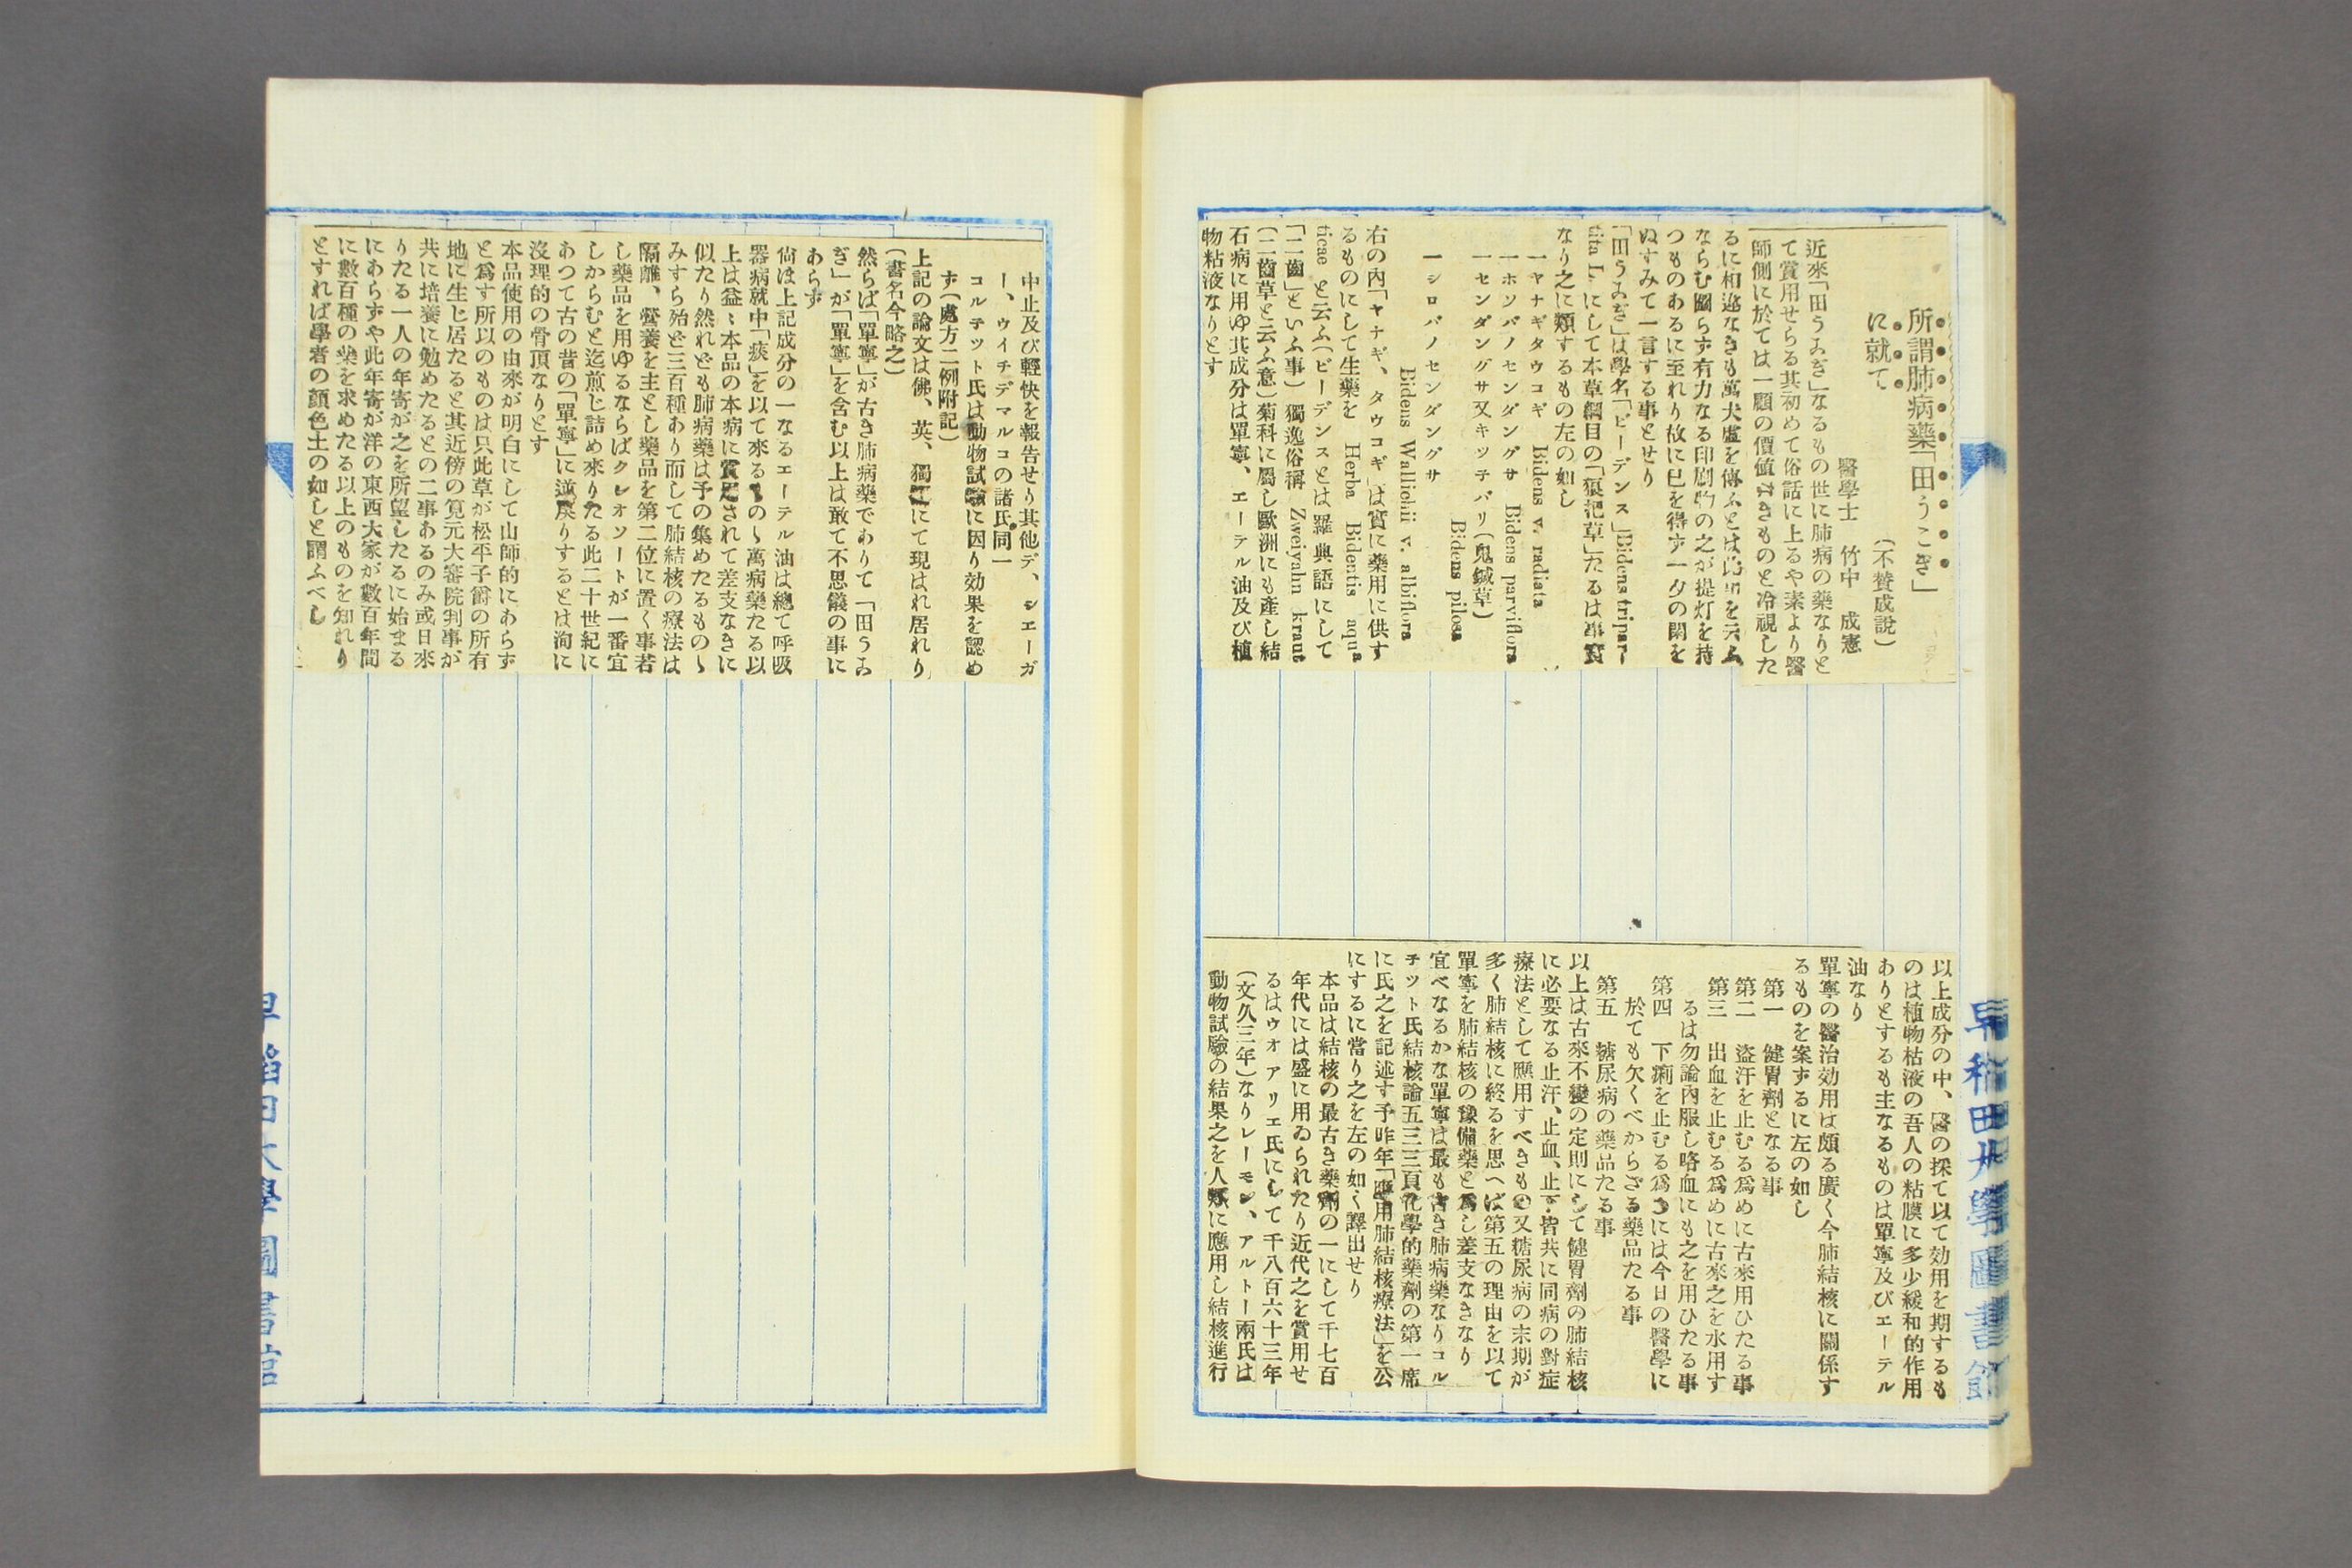 所謂肺病藥「田うこぎ」
に就て
（不賛成說）
醫學士　竹中　成憲
近來「田うこぎ」なるもの世に肺病の藥なりと
て賞用せらる其初めて俗話に上るや素より醫
師側に於ては一顧の價値なきものと冷視した
るに相違なきも萬犬虛を傳ふとは此事を云ふ
ならむ圖らす有力なる印刷物の之が提灯を持
つものあるに至れり故に已を得ず一夕の閑を
ぬすみて一言する事とせり
「田うこぎ」は學名「ビーデンス」Bidens tripar-
tita L. にして本草綱目の「狼把草」たるは事實
なり之に類するもの左の如し
一ヤナギタウコギ　Bidens v. radiata
一ホソバノセンダングサ　Bidens parviflora
一センダングサ又キツチバリ（鬼鍼草）
Bidens pilosa
一シロバノセンダングサ
Bidens Wallichii v. albiflora
右の內「ヤナギ、タウコギ」は實に藥用に供す
るものにして生藥を　Herba Bidentis aqua
ticae と云ふ（ビーデンスとは羅典語にして
「二齒」といふ事）獨逸俗稱　Zweiyahn kraut
（二齒草と云ふ意）菊科に屬し歐洲にも產し結
石病に用ゆ其成分は單寧、エーテル油及び植
物粘液なりとす
以上成分の中、醫の採て以て効用を期するも
のは植物枯液の吾人の粘膜に多少緩和的作用
ありとするも主なるものは單寧及びエーテル
油なり
單寧の醫治効用は頗る廣く今肺結核に關係す
るものを案ずるに左の如し
第一　健胃劑となる事
第二　盜汗を止むる爲めに古來用ひたる事
第三　出血を止むる爲めに古來之を水用す
るは勿論內服し咯血にも之を用ひたる事
第四　下痢を止むる爲めには今日の醫學に
於ても欠くべからざる藥品たる事
第五　糖尿病の藥品たる事
以上は古來不變の定則にして健胃劑の肺結核
に必要なる止汗、止血、止下皆共に同病の對症
療法として應用すべきもの又糖尿病の末期が
多く肺結核に終るを思へば第五の理由を以て
單寧を肺結核の豫備藥と爲し差支なきなり
宜べなるかな單寧は最も古き肺病藥なりコル
チツト氏結核論五三三頁化學的藥劑の第一席
に氏之を記述す予昨年「應用肺結核療法」を公
にするに當り之を左の如く譯出せり
本品は結核の最古き藥劑の一にして千七百
年代には盛に用ゐられたり近代之を賞用せ
るはウオアリエ氏にして千八百六十三年
（文久三年）なりレーモン、アルトー兩氏は
動物試驗の結果之を人類に應用し結核進行
中止及び輕快を報告せり其他デ、シエーガ
ー、ウイチデマルコの諸氏同一
コルチツト氏は動物試驗に因り効果を認め
ず（處方二例附記）
上記の論文は佛、英、獨■にて現はれ居れり
（書名今略之）
然らば「單寧」が古き肺病藥でありて「田うこ
ぎ」が「單寧」を含む以上は敢て不思儀の事に
あらず
尙ほ上記成分の一なるエーテル油は總て呼吸
器病就中「痰」を以て來るもの丶萬病藥たる以
上は益〻本品の本病に賞用されて差支なきに
似たり然れども肺病藥は予の集めたるもの丶
みすら殆ど三百種あり而して肺結核の療法は
隔離、營養を主とし藥品を第二位に置く事若
し藥品を用ゆるならばクレオソートが一番宜
しからむと迄煎じ詰め來りたる此二十世紀に
あつて古の昔の「單寧」に逆戾りするとは洵に
沒理的の骨頂なりとす
本品使用の由來が明白にして山師的にあらず
と爲す所以のものは只此草が松平子爵の所有
地に生じ居たると其近傍の筧元大審院判事が
共に培養に勉めたるとの二事あるのみ或日來
りたる一人の年寄が之を所望したるに始まる
にあらずや此年寄が洋の東西大家が數百年間
に數百種の藥を求めたる以上のものを知れり
とすれば學者の顏色土の如しと謂ふべし
早稻田大學圖書館
早稻田大學圖書館